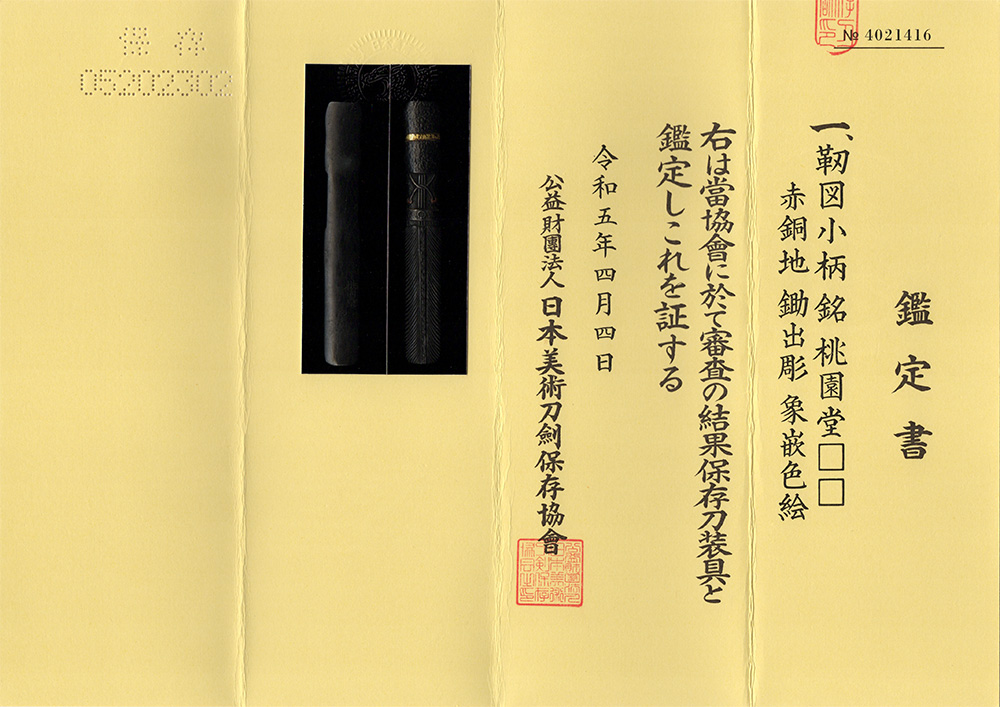 № 4021416
鑑定書
一、靭図小柄 銘 桃園堂□□
赤銅地 鋤出彫 象嵌色絵
右は當協會に於て審査の結果保存刀装具と
鑑定しこれを証する
令和五年四月四日
公益財團法人 日本美術刀劍保存協會
保存
05202302